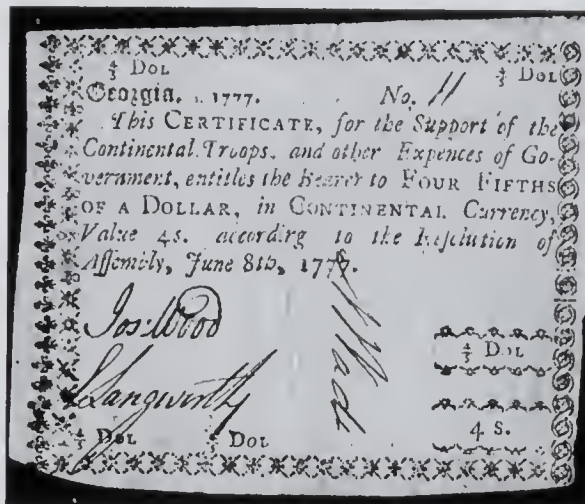 ⅘ DOL ⅘ DOL
Georgia, 1777. No. 11
This CERTIFICATE, for the Support of the
Continental Troops, and other Expences of Go-
vernment, entitles the Bearer to FOUR FIFTHS
OF A DOLLAR, in CONTINENTAL Currency,
Value 4s. according to the Resolution of
Assembly, June 8th, 1777.
Jos: Wood
⅘ DOL
Langworthy
4 S.
⅘ DOL ⅘ DOL